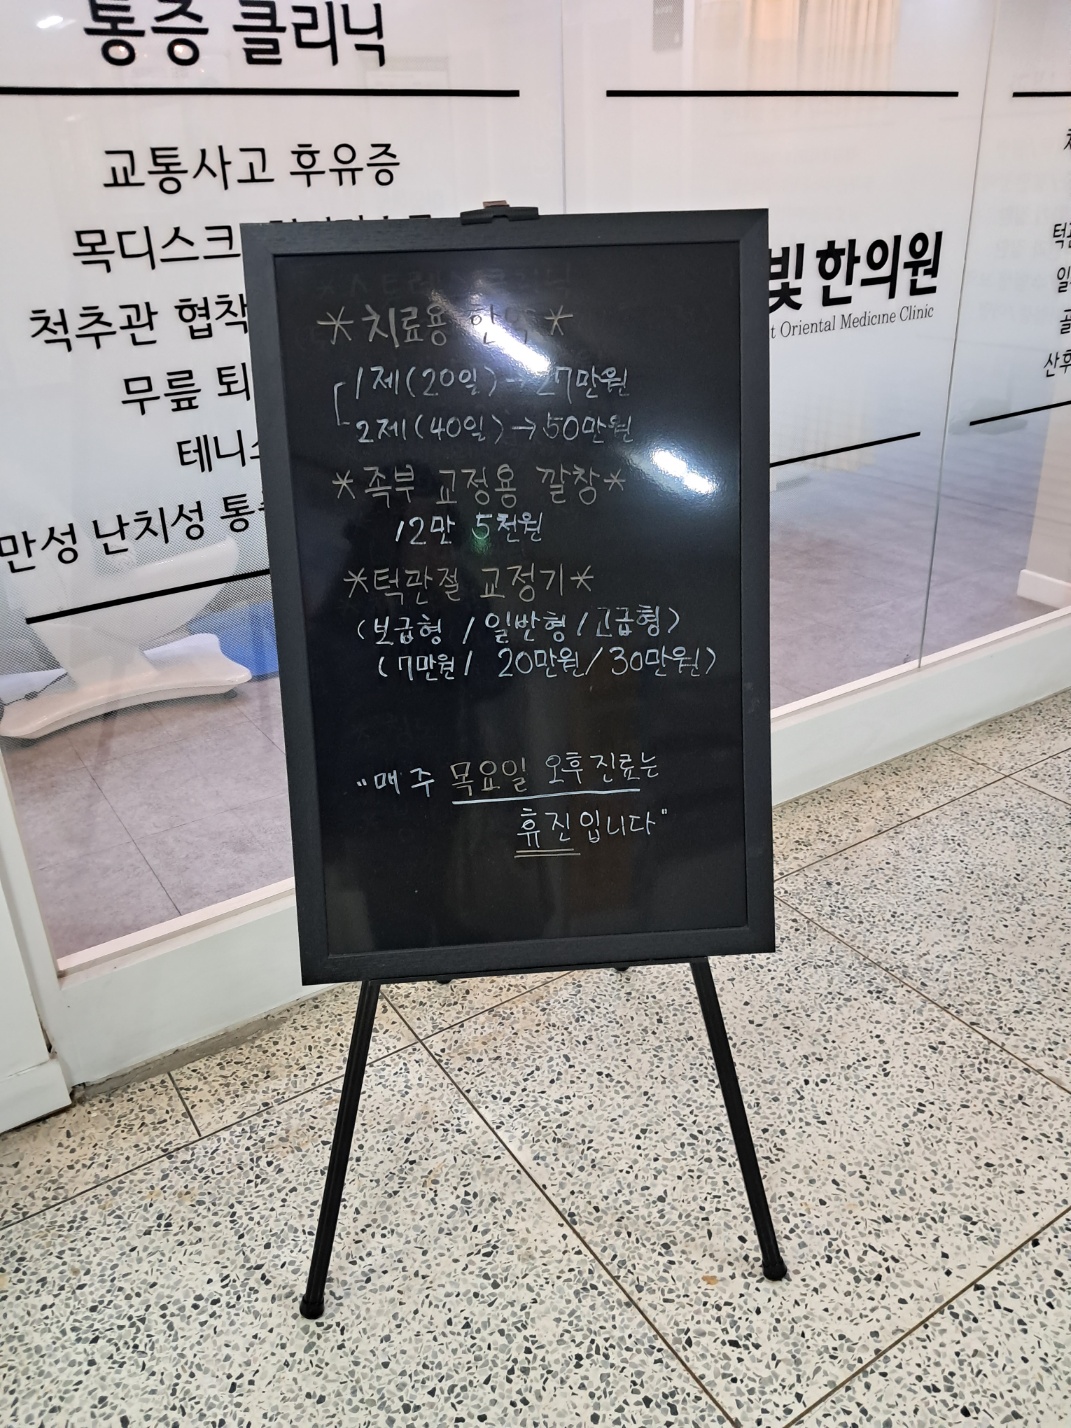 통증 클리닉
교통사고 후유증
목디스크
척추관 협착
무릎 퇴
테니스
만성 난치성 통증
빛 한의원
t Oriental Medicine Clinic
턱관
산후
*치료용 한약*
1제(20일)→27만원
2제(40일)→50만원
*족부 교정용 깔창*
12만 5천원
*턱관절 교정기*
(보급형 / 일반형 / 고급형)
(7만원 / 20만원 / 30만원)
"매주 목요일 오후진료는
휴진입니다"